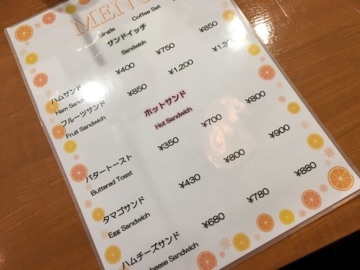 MEN
Single Coffee Set
サンドイッチ
Sandwich
ハムサンド ¥400 ¥750 ¥850
Ham Sand
フルーツサンド ¥850 ¥1,200
Fruit Sandwich
ホットサンド
Hot Sandwich
バタートースト ¥350 ¥700 ¥800
Buttered Toast
タマゴサンド ¥430 ¥800 ¥900
Egg Sandwich
ハムチーズサンド ¥680 ¥780 ¥880
Cheese Sandwich